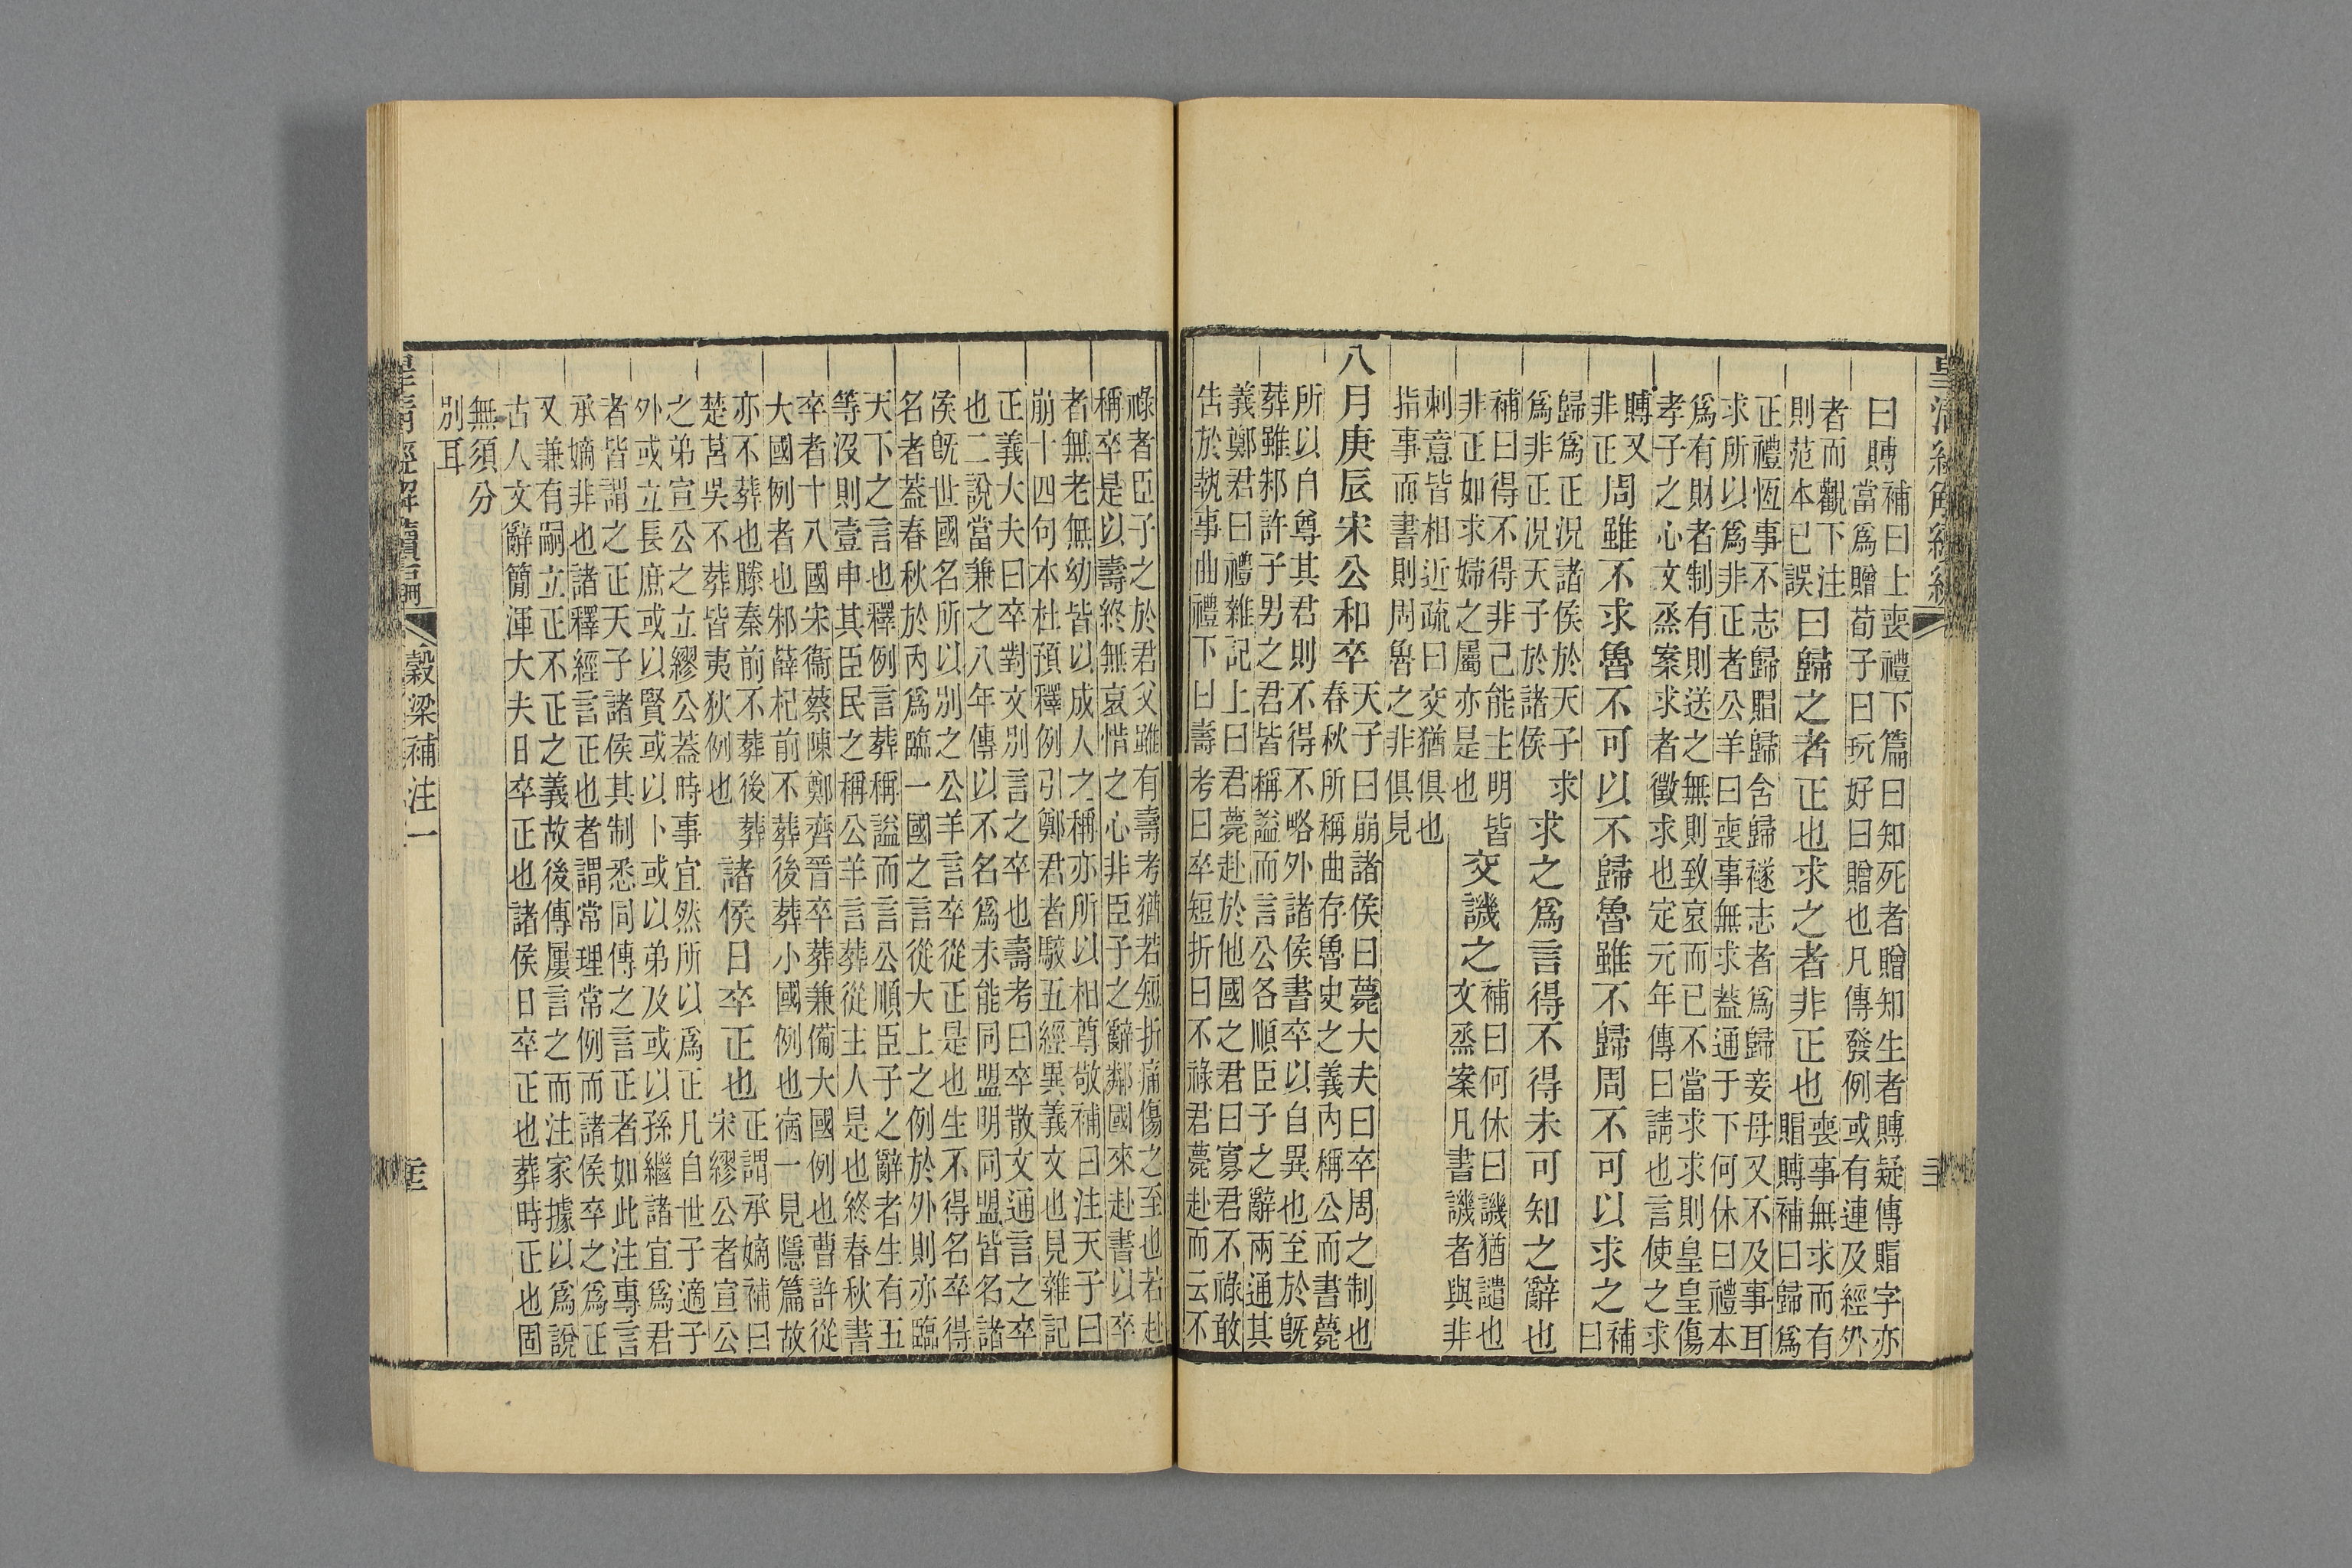 曰賵
補曰士喪禮下篇曰知死者贈知生者賻疑傳賵字亦
當爲贈荀子曰玩好曰贈也凡傳發例或有連及經外
者而觀下注
則范本已誤
曰歸之者正也求之者非正也
喪事無求而有
賵賻補曰歸爲
正禮恆事不志歸賵歸含歸襚志者爲歸妾母又不及事耳
求所以爲非正者公羊曰喪事無求蓋通于下何休曰禮本
爲有財者制有則送之無則致哀而已不當求求則皇皇傷
孝子之心文烝案求者徵求也定元年傳曰請也言使之求
賻又
非正
周雖不求魯不可以不歸魯雖不歸周不可以求之
補
曰
歸爲正況諸侯於天子求
爲非正況天子於諸侯
求之爲言得不得未可知之辭也
補曰得不得非己能主明皆
非正如求婦之屬亦是也
交譏之
補曰何休曰譏猶譴也
文烝案凡書譏者與非
刺意皆相近疏曰交猶俱也
指事而書則周魯之非俱見
八月庚辰宋公和卒
天子曰崩諸侯曰薨大夫曰卒周之制也
春秋所稱曲存魯史之義內稱公而書薨
所以自尊其君則不得不略外諸侯書卒以自異也至於旣
葬雖邾許子男之君皆稱謚而言公各順臣子之辭兩通其
義鄭君曰禮雜記上曰君薨赴於他國之君曰寡君不祿敢
告於執事曲禮下曰壽考曰卒短折曰不祿君薨赴而云不
祿者臣子之於君父雖有壽考猶若短折痛傷之至也若赴
稱卒是以壽終無哀惜之心非臣子之辭鄰國來赴書以卒
者無老無幼皆以成人之稱亦所以相尊敬補曰注天子曰
崩十四句本杜預釋例引鄭君者駮五經異義文也見雜記
正義大夫曰卒對文別言之卒也壽考曰卒散文通言之卒
也二說當兼之八年傳以不名爲未能同盟明同盟皆名諸
侯旣世國名所以別之公羊言卒從正是也生不得名卒得
名者蓋春秋於內爲臨一國之言從大上之例於外則亦臨
天下之言也釋例言葬稱謚而言公順臣子之辭者生有五
等沒則壹申其臣民之稱公羊言葬從主人是也終春秋書
卒者十八國宋衞蔡陳鄭齊晉卒葬兼備大國例也曹許從
大國例者也邾薛杞前不葬後葬小國例也宿一見隱篇故
亦不葬也滕秦前不葬後葬
楚莒吳不葬皆夷狄例也
諸侯日卒正也
正謂承嫡補曰
宋繆公者宣公
之弟宣公之立繆公蓋時事宜然所以爲正凡自世子適子
外或立長庶或以賢或以卜或以弟及或以孫繼諸宜爲君
者皆謂之正天子諸侯其制悉同傳之言正者如此注專言
承嫡非也諸釋經言正也者謂常理常例而諸侯卒之爲正
又兼有嗣立正不正之義故後傳屢言之而注家據以爲說
古人文辭簡渾大夫日卒正也諸侯日卒正也葬時正也固
無須分
別耳
穀梁補注一